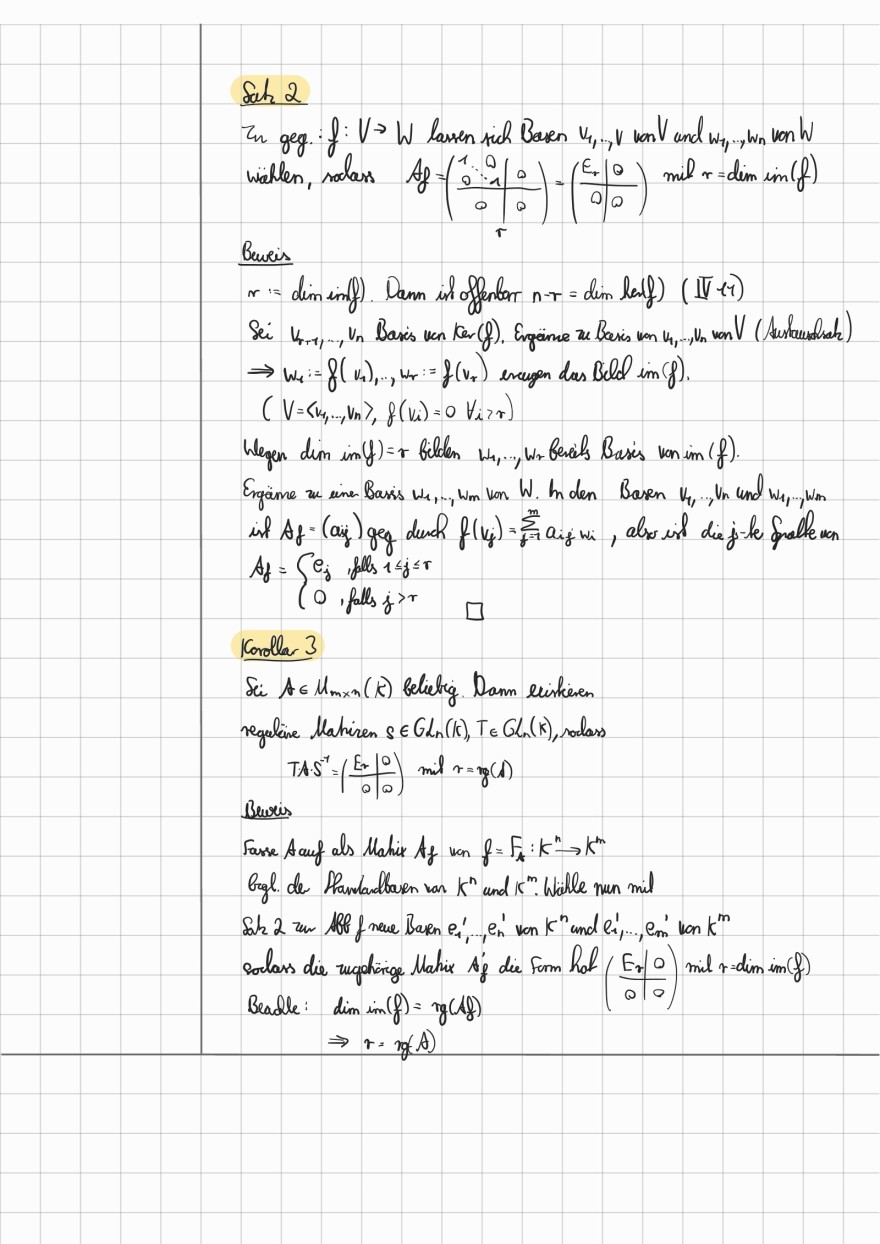 Satz 2
Zu geg.: f: V → W lassen sich Basen v₁,..,v von V und w₁,..,wₙ von W
wählen, sodass A_f = (1 ⋱ 1 0 | 0 / 0 | 0) = (E_r | 0 / 0 | 0) mit r = dim im(f)
r
Beweis
r := dim im(f). Dann ist offenbar n-r = dim ker(f) (IV 11)
Sei v_{r+1},...,vₙ Basis von Ker(f). Ergänze zu Basis von v₁,..,vₙ von V (Austauschsatz)
⇒ w₁ := f(v₁),..,w_r := f(v_r) erzeugen das Bild im(f).
(V=<v₁,...,vₙ>, f(vᵢ) = 0 ∀i>r)
Wegen dim im(f)=r bilden w₁,..,w_r bereits Basis von im(f).
Ergänze zu einer Basis w₁,...,wₘ von W. In den Basen v₁,..,vₙ und w₁,..,wₘ
ist A_f = (aᵢⱼ) geg durch f(vⱼ) = ∑_{j=1}^{m} aᵢⱼ wᵢ , also ist die j-te Spalte von
A_f = { eⱼ , falls 1≤j≤r
0 , falls j>r □
Korollar 3
Sei A ∈ M_{m×n}(K) beliebig. Dann existieren
reguläre Matrizen S ∈ GLₙ(K), T ∈ GLₙ(K), sodass
T·A·S⁻¹ = (E_r | 0 / 0 | 0) mit r = rg(A)
Beweis
Fasse A auf als Matrix A_f von f = F_A : Kⁿ → Kᵐ
bzgl. der Standardbasen von Kⁿ und Kᵐ. Wähle nun mit
Satz 2 zur Abb f neue Basen e₁',...,eₙ' von Kⁿ und e₁',...,eₘ' von Kᵐ
sodass die zugehörige Matrix A'_f die Form hat (E_r | 0 / 0 | 0) mit r=dim im(f)
Beachte: dim im(f) = rg(A_f)
⇒ r = rg(A)